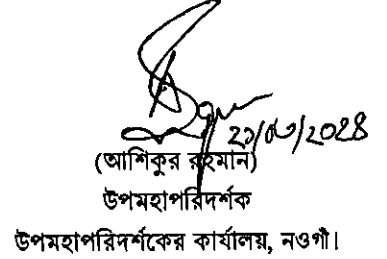 ২১/০৩/২০২৪
(আশিকুর রহমান)
উপমহাপরিদর্শক
উপমহাপরিদর্শকের কার্যালয়, নওগাঁ।